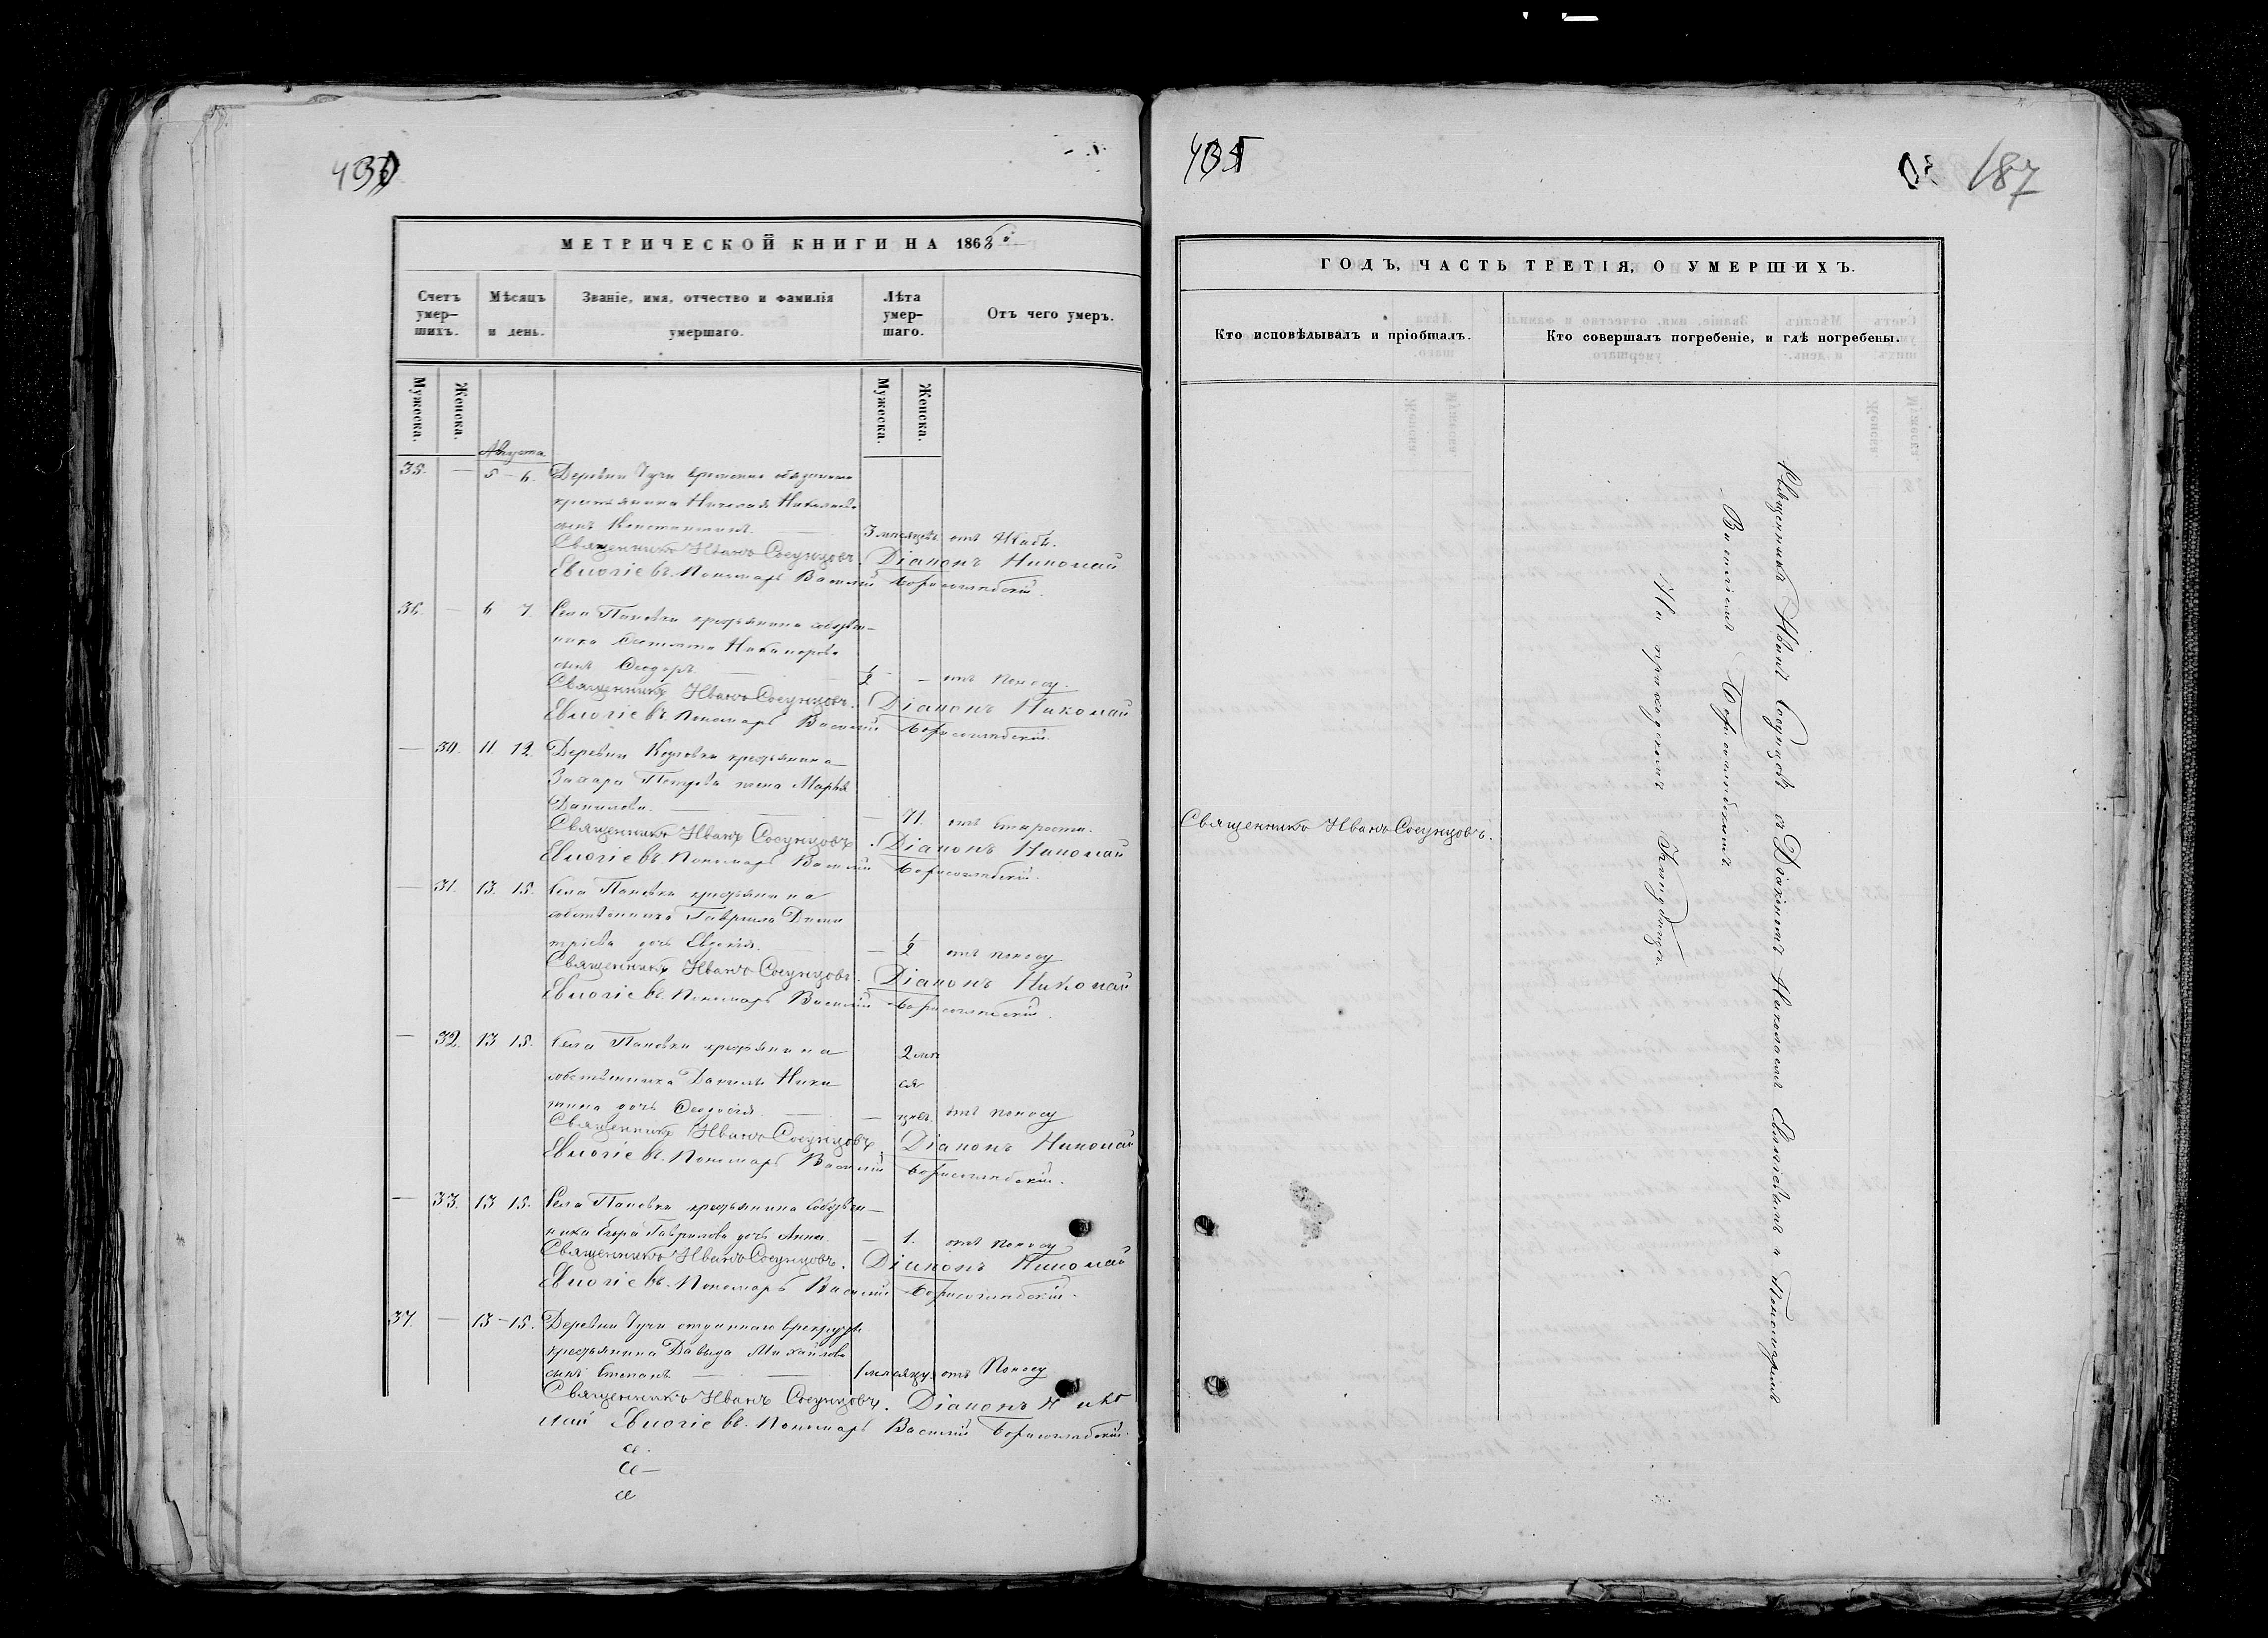 430
МЕТРИЧЕСКОЙ КНИГИ НА 1868й
Счетъ умер-шихъ. Мѣсяцъ и день. Званіе, имя, отчество и фамилія умершаго. Лѣта умер-шаго. Отъ чего умеръ.
Мужеска. Женска. Мужеска. Женска.
Августа
35. — 5 – 6. Деревни Тучи временно обязаннаго
крестьянина Николая
сынъ Константинъ. 3 мѣсяцевъ отъ Жабы.
Священникъ Иванъ Сосунцовъ. Діаконъ Николай
Евлогіевъ. Пономарь Василій Борисоглѣбскій.
36. — 6 7. Села Пановки крестьянина собствен-
ника Никанорова
сынъ Ѳеодоръ. ½ — отъ поносу.
Священникъ Иванъ Сосунцовъ. Діаконъ Николай
Евлогіевъ. Пономарь Василій Борисоглѣбскій.
— 30. 11. 12. Деревни Козловки крестьянина
Захара Петрова жена Марья
Данилова. — 71. отъ старости.
Священникъ Иванъ Сосунцовъ. Діаконъ Николай
Евлогіевъ. Пономарь Василій Борисоглѣбскій.
— 31. 13. 15. Села Пановки крестьянина
собственника Гаврила Дими
тріева дочь Евдокія. — ½ отъ поносу
Священникъ Иванъ Сосунцовъ. Діаконъ Николай
Евлогіевъ. Пономарь Василій Борисоглѣбскій.
— 32. 13 15. Села Пановки крестьянина 2 мѣ
собственника Данила Ники ся
тина дочь Ѳеодосія. — цевъ. отъ поносу
Священникъ Иванъ Сосунцовъ. Діаконъ Николай
Евлогіевъ. Пономарь Василій Борисоглѣбскій.
— 33. 13 15. Села Пановки крестьянина собствен-
ника Егора Гаврилова дочь Анна. — 1. отъ поносу
Священникъ Иванъ Сосунцовъ. Діаконъ Николай
Евлогіевъ. Пономарь Василій Борисоглѣбскій.
37. — 13 – 15. Деревни Тучи
крестьянина Давыда Михайлова
сынъ Степанъ. 1 мѣсяцу отъ Поносу
Священникъ Иванъ Сосунцовъ. Діаконъ Нико
лай Евлогіевъ. Пономарь Василій Борисоглѣбскій.
187
ГОДЪ, ЧАСТЬ ТРЕТІЯ, О УМЕРШИХЪ.
Кто исповѣдывалъ и пріобщалъ. Кто совершалъ погребеніе, и гдѣ погребены.
Священникъ Иванъ Сосунцовъ.
Священникъ Иванъ Сосунцовъ съ Діакономъ Николаемъ Евлогіевымъ и Пономаремъ
Василіемъ Борисоглѣбскимъ.
На приходскомъ кладбищѣ.